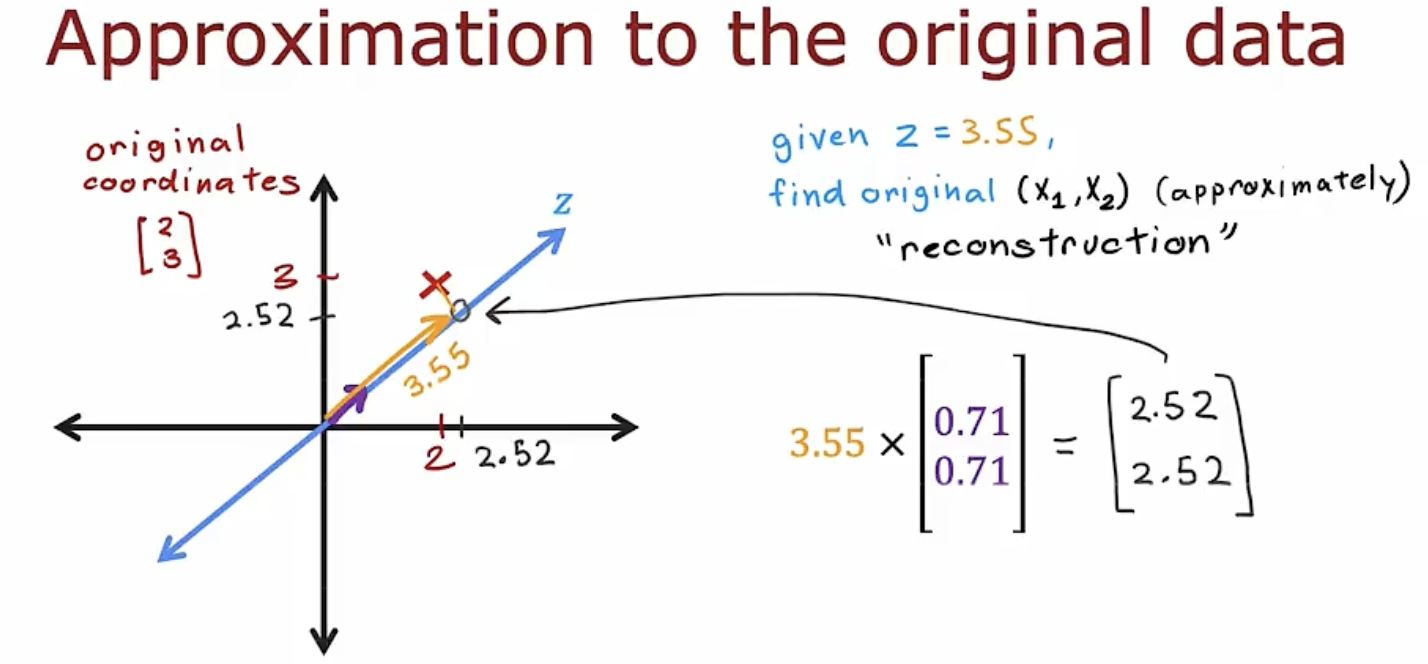 Approximation to the original data
original
coordinates
[2
3]
z
3
2.52
3.55
2 2.52
given z = 3.55,
find original (x₁, x₂) (approximately)
"reconstruction"
3.55 × [0.71
0.71] = [2.52
2.52]